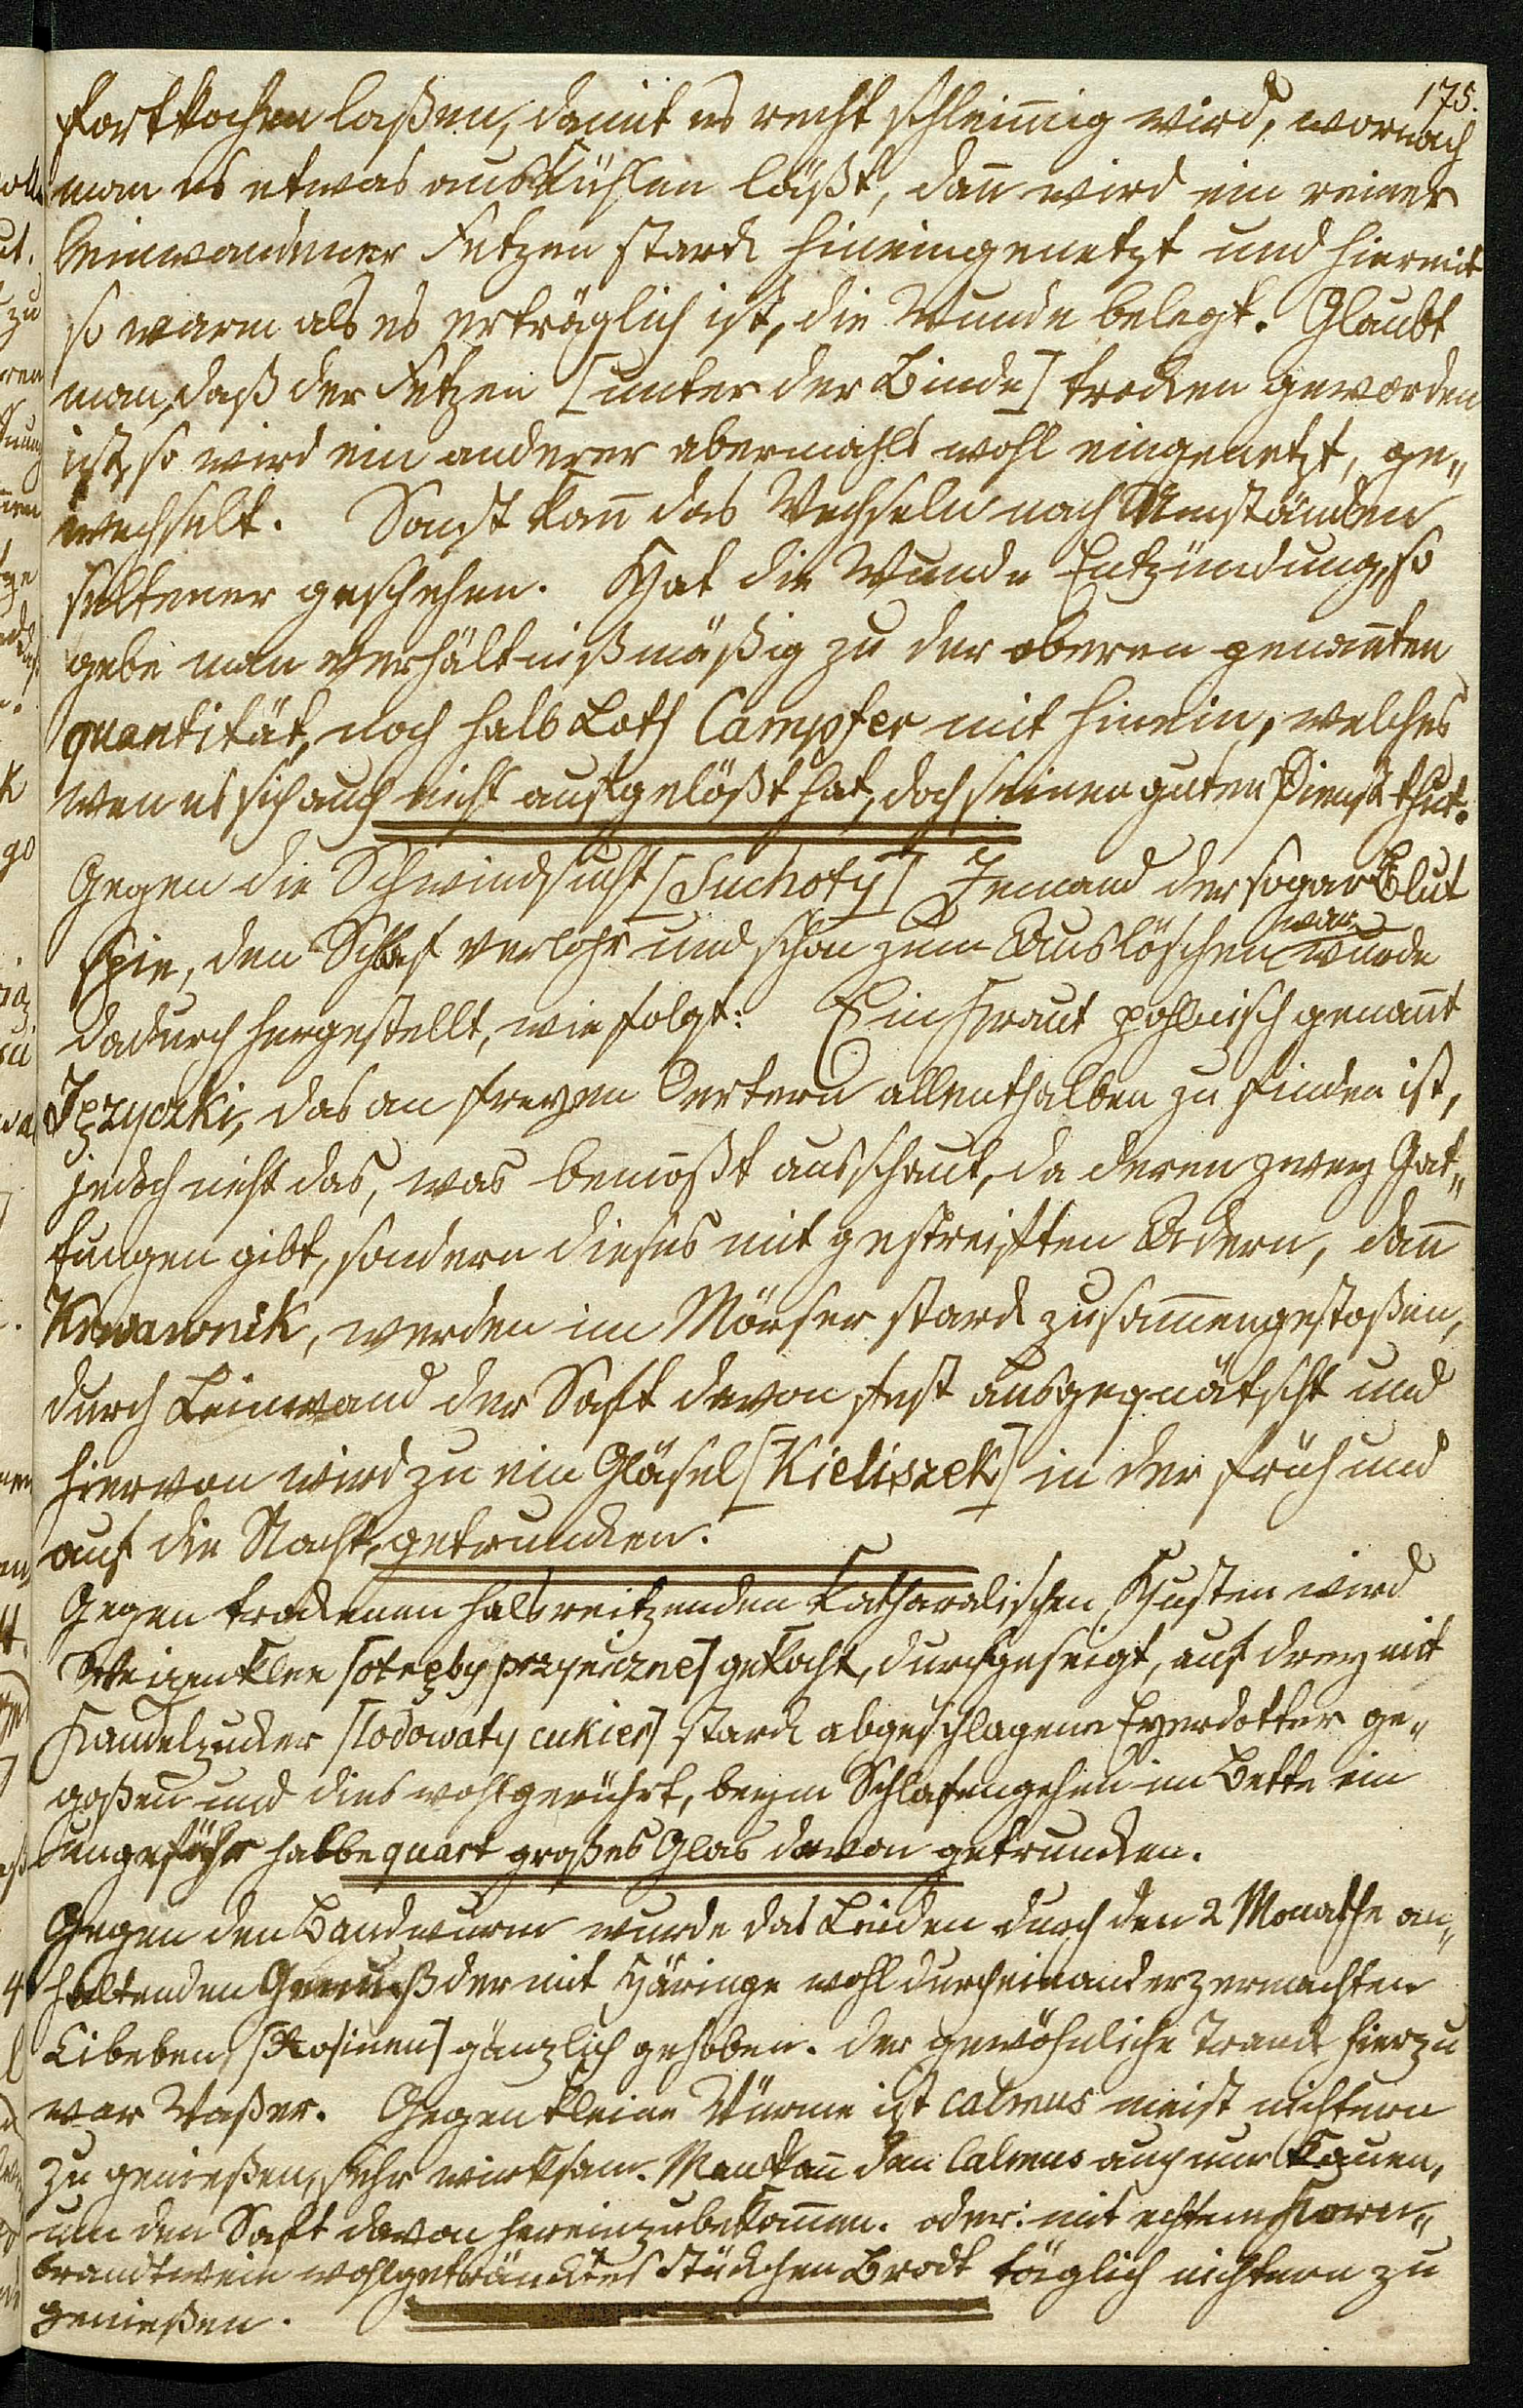 175.
fortkochen laßen, damit es recht schleimig wird, wornach
man es etwas auskühlen läßt, dañ wird ein reiner
Leinwandener Fetzen starck hineingenetzt und hiermit
so warm als es erträglich ist, die Wunde belegt. Glaubt
man, daß der Fetzen [unter der Binde] trocken geworden
ist, so wird ein anderer abermahls wohl eingenetzt, ge„
wechselt. Sonst kañ das Wechseln nach Umständen
seltener geschehen. Hat die Wunde Entzündung, so
gebe man verhältnißmäßig zu der oberen genañten
quantität, noch halb Loth Campfer mit hinein, welches
wen es sich auch nicht aufgelößt hat, doch seinen guten Dienst thut.
Gegen die Schwindsucht [Suchoty] Jemand der sogar Blut
spie, den Schlaf verlohr und schon zum Auslöschen war wurde
dadurch hergestellt, wie folgt: Ein Kraut pohlnisch genañt
Języczki, das an freyen Oertern allenthalben zu finden ist,
jedoch nicht das, was bemoßt ausschaut, da deren zwey Gat„
tungen gibt, sondern dieses mit gestreiften Adern, dañ
Krwawnik, werden im Mörser starck zusam̃engestoßen,
durch Leinwand der Saft davon fest ausgequätscht und
hiervon wird zu ein Gläsel [Kieliszek] in der früh und
auf die Nacht, getruncken.
Gegen trockenen halsreitzenden Katharalischen Husten wird
Weizenkleie [otręby pszeniczne] gekocht, durchgeseigt, auf drey mit
Kandelzucker [lodowaty cukier] starck abgeschlagene Eyerdotter ge„
goßen und dies wohlgerührt, beym Schlafengehen im Bette ein
ungefähr halbe quart großes Glas davon getruncken.
Gegen den Bandwurm wurde das Leiden durch den 2 Monathe an„
haltenden Genuß der mit Häringe wohl durcheinander zermachten
Cibeben [Rosinen] gänzlich gehoben. der gewöhnliche Tranck hierzu
war Waßer. Gegen kleine Würme ist calmus meist nichtern
zu genießen, sehr wirksam. Man kañ den Calmus auch nur kauen,
um den Saft davon hereinzubekom̃en. oder: mit echtem Korn„
brandtwein wohlgeträncktes Stückchen Brodt täglich nichtern zu
genießen.